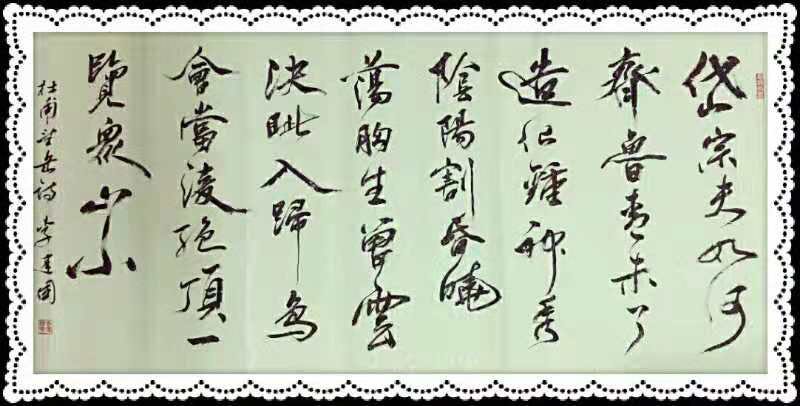 岱宗夫如何
齊魯青未了
造化鍾神秀
陰陽割昏曉
蕩胸生曾雲
決眥入歸鳥
會當淩絕頂一
覽衆山小
杜甫望岳詩 李建國